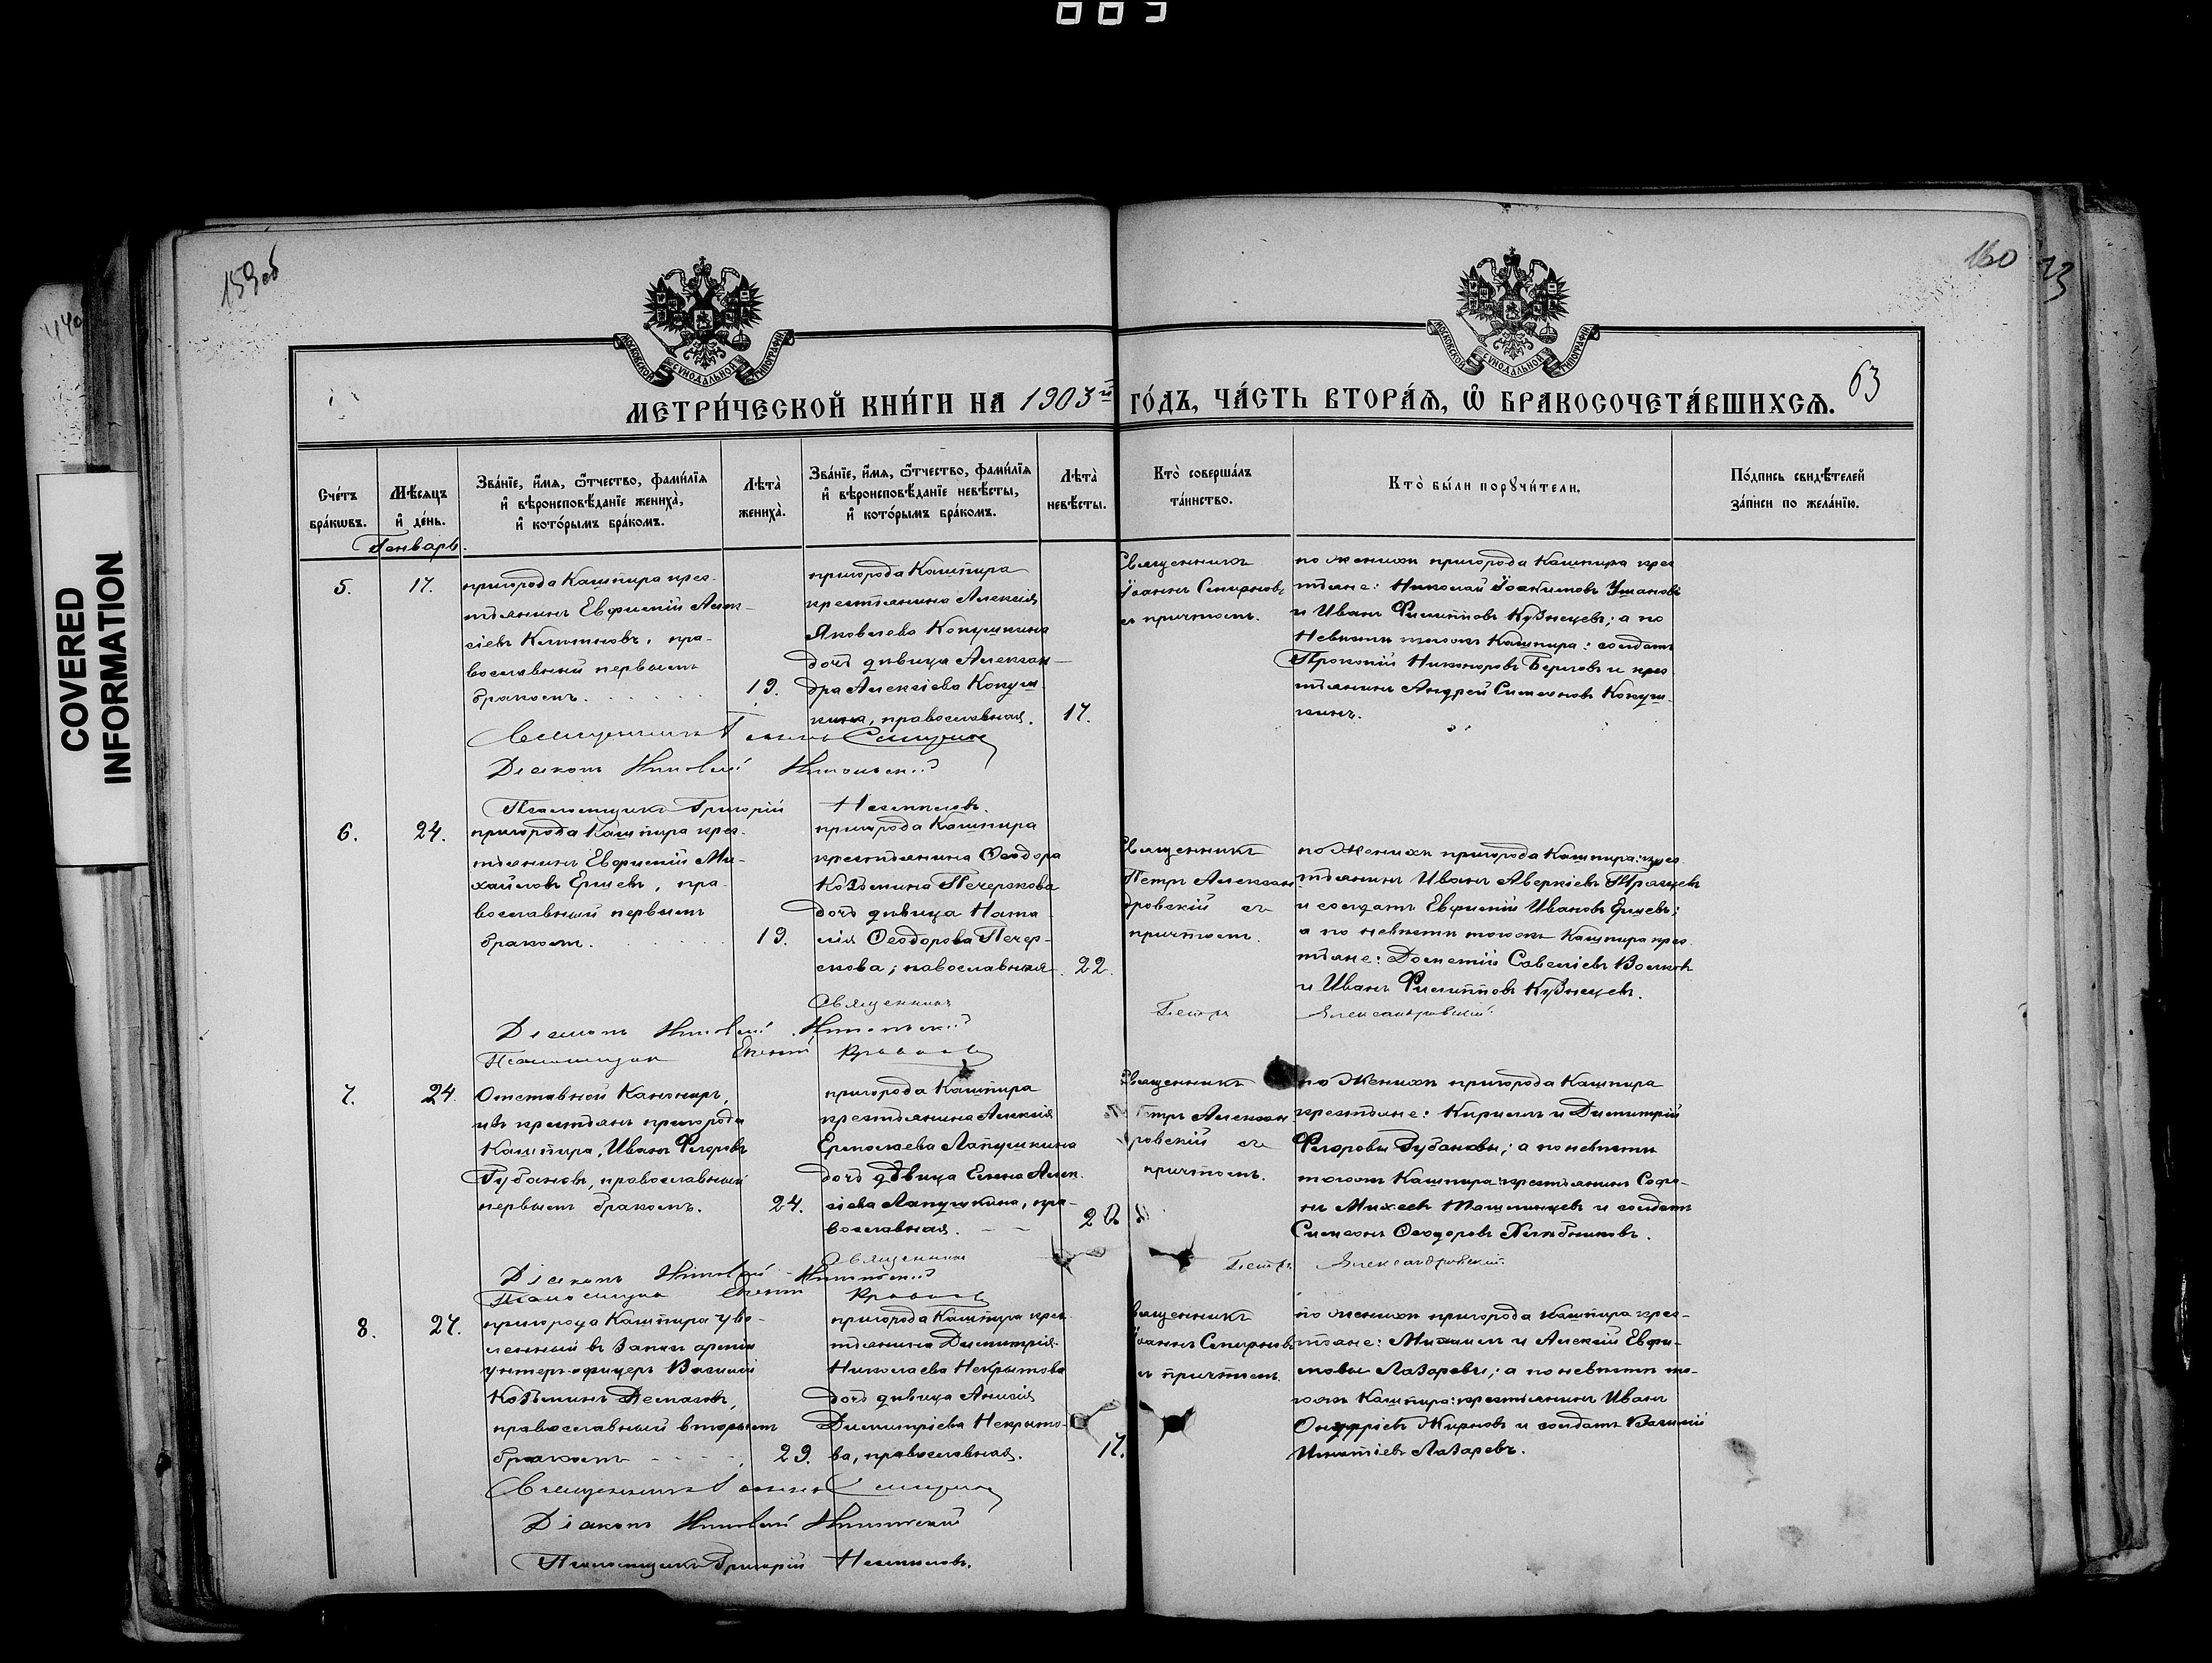 003
COVERED
INFORMATION
159об
160
23
63
МОСКОВСКОЙ СѴНОДАЛЬНОЙ ТИПОГРАФІИ
МОСКОВСКОЙ СѴНОДАЛЬНОЙ ТИПОГРАФІИ
МЕТРИ́ЧЕСКОЙ КНИ́ГИ НА 1903й ГО́ДЪ, ЧА́СТЬ ВТОРА́Ѧ, Ѡ҆ БРАКОСОЧЕТА́ВШИХСѦ.
Сче́тъ
бра́кѡвъ.
Мѣ́сѧцъ
и҆ де́нь.
Зва́нїе, и҆́мѧ, ѻ҆́тчество, фами́лїѧ
и҆ вѣроисповѣ́данїе жениха̀,
и҆ кото́рымъ бра́комъ.
Лѣта̀
жениха̀.
Зва́нїе, и҆́мѧ, ѻ҆́тчество, фами́лїѧ
и҆ вѣроисповѣ́данїе невѣ́сты,
и҆ кото́рымъ бра́комъ.
Лѣта̀
невѣ́сты.
Кто̀ соверша́лъ
та́инство.
Кто̀ бы́ли порꙋчи́тели.
По́дпись свидѣ́телей
за́писи по жела́нїю.
Генварь.
5.
17.
пригорода Кашпира крес-
тьянинъ Евфимій Алек-
сіевъ, пра-
вославный первымъ
бракомъ.
19.
пригорода Кашпира
крестьянина Алексія
Яковлева Кокушкина
дочь дѣвица Алексан-
дра Алексіева Кокуш-
кина, православная.
17.
Священникъ
Іоаннъ Смирновъ
съ причтомъ.
по женихѣ пригорода Кашпира крес
тьяне: Николай Іоакимовъ Ушановъ
и Иванъ Филипповъ Кузнецовъ; а по
невѣстѣ тогожъ Кашпира: солдатъ
Прокопій Никоноровъ и крес
тьянинъ Андрей Симеоновъ Кокуш-
кинъ.
Священникъ Іоаннъ Смирновъ
Діаконъ Николай Никольскій
Псаломщикъ Григорій
6.
24.
пригорода Кашпира крес-
тьянинъ Евфимій Ми-
хайловъ Ершевъ, пра-
вославный первымъ
бракомъ.
19.
пригорода Кашпира
крестьянина Ѳеодора
Козьмина Печерскова
дочь дѣвица Ната-
лія Ѳеодорова Печер-
скова; павославная.
22.
Священникъ
Петръ Алексан
дровскій съ
причтомъ.
по женихѣ пригорода Кашпира: крес
тьянинъ Иванъ Аверкіевъ
и солдатъ Евфимій Ивановъ Ершевъ;
а по невѣстѣ тогожъ Кашпира крес
тьяне: Дометій Савеліевъ Волковъ
и Иванъ Филипповъ Кузнецевъ.
Священникъ Петръ Александровскій.
Діаконъ Николай Никольскій
Псаломщикъ
7.
24.
Отставной Канониръ,
изъ крестьянъ пригорода
Кашпира, Иванъ Ѳеоровъ
Губановъ, православный
первымъ бракомъ.
24.
пригорода Кашпира
крестьянина Алексія
Ермолаева Лапушкина
дочь дѣвица Елена Алек-
сіева Лапушкина, пра-
вославная.
20
Священникъ
Петръ Алексан
дровскій съ
причтомъ.
по женихѣ пригорода Кашпира
крестьяне: Кириллъ и Димитрій
Ѳеоровы Губановы; а по невѣстѣ
тогожъ Кашпира: крестьянинъ Софо-
нъ Михеевъ Ташлинцевъ и солдатъ
Симеонъ Ѳеодоровъ Хлѣбниковъ.
Священникъ Петръ Александровскій.
Діаконъ Николай Никольскій
Псаломщикъ
8.
27.
пригорода Кашпира уво-
ленный въ запасъ арміи
унтеръ-офицеръ Василій
Козьминъ,
православный вторымъ
бракомъ
29.
пригорода Кашпира крес
тьянина Димитрія
Николаева Некрытова
дочь дѣвица Анисія
Димитріева Некрыто-
ва, православная.
17.
Священникъ
Іоаннъ Смирновъ
съ причтомъ.
по женихѣ пригорода Кашпира крес-
тьяне: Михаилъ и Алексій Евфи-
мовы Лазаревы; а по невѣстѣ то-
гожъ Кашпира: крестьянинъ Иванъ
Онуфріевъ Жирновъ и солдатъ Василій
Игнатіевъ Лазаревъ.
Священникъ Іоаннъ Смирновъ
Діаконъ Николай Никольскій
Псаломщикъ Григорій